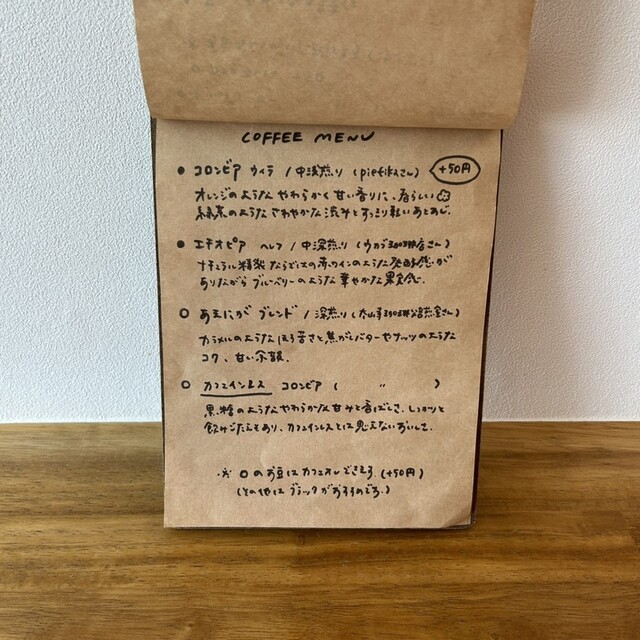 COFFEE MENU
● コロンビア ウィラ / 中浅煎り (pietikaさん) +50円
オレンジのような やわらかく甘い香りに、春らしい
緑茶のような さわやかな渋みと すっきり軽いあとあじ。
● エチオピア / 中深煎り (ウカブ さん)
ナチュラル精製ならではの赤ワインのような発酵感が
ありながら ブルーベリーのような 華やかな果実感。
○ あまにがブレンド / 深煎り (さん)
カラメルのような ほろ苦さと 焦がしバターやナッツのような
コク、甘い余韻。
○ カフェインレス コロンビア ( 〃 )
黒糖のような やわらかな甘みと香ばしさ。しっかりと
飲みごたえもあり、カフェインレスとは思えないおいしさ。
※ ○のお豆はカフェオレできます。(+50円)
(その他は ブラックがおすすめです。)